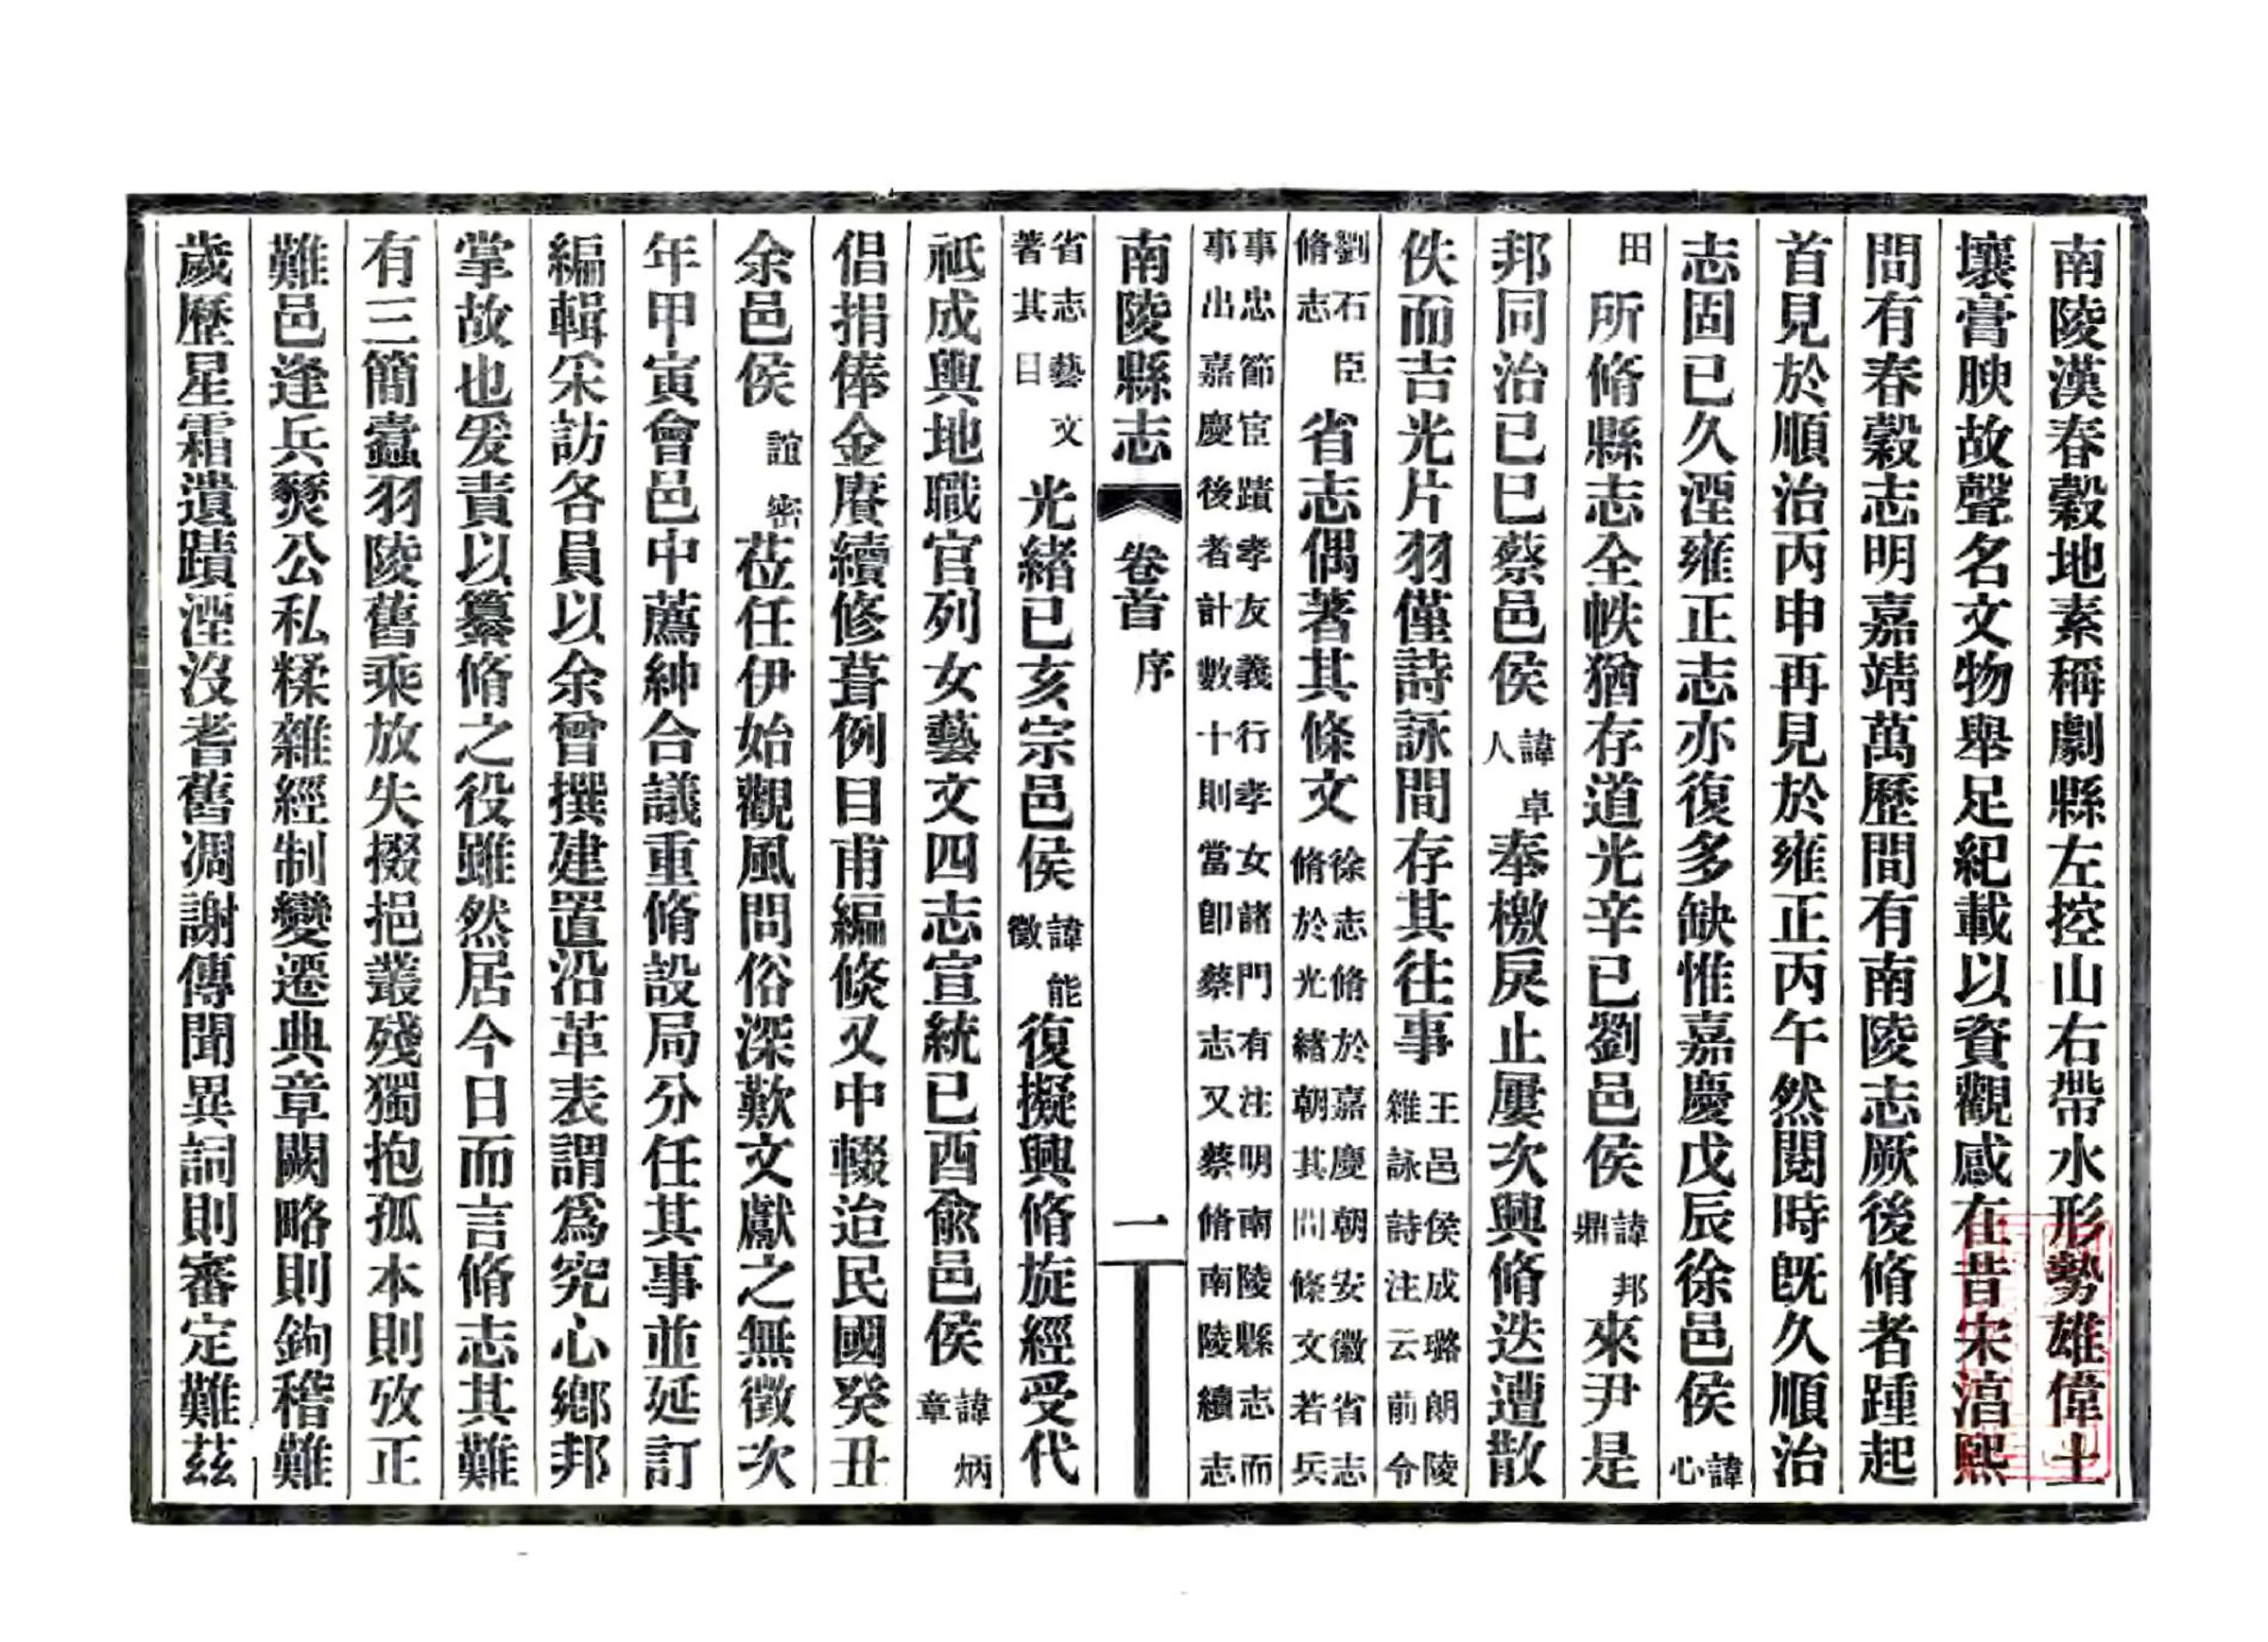 南陵漢春穀地素稱劇縣左控山右帶水形勢雄偉土
壤膏腴故聲名文物舉足紀載以資觀感在昔宋淳熙
間有春穀志明嘉靖萬歷間有南陵志厥後脩者踵起
首見於順治丙申再見於雍正丙午然閱時旣久順治
志固已久湮雍正志亦復多缺惟嘉慶戊辰徐邑侯諱心
田所脩縣志全帙猶存道光辛巳劉邑侯諱邦鼎來尹是
邦同治己巳蔡邑侯諱卓人奉檄戾止屢次興脩迭遭散
佚而吉光片羽僅詩詠間存其往事王邑侯成璐朗陵雜詠詩注云前令
劉石臣脩志省志偶著其條文徐志脩於嘉慶朝安徽省志脩於光緒朝其間條文若兵
事忠節宦蹟孝友義行孝女諸門有注明南陵縣志而事出嘉慶後者計數十則當卽蔡志又蔡脩南陵續志
南陵縣志 卷首 序 一
省志藝文著其目光緒己亥宗邑侯諱能徵復擬興脩旋經受代
祗成輿地職官列女藝文四志宣統己酉兪邑侯諱炳章
倡捐俸金賡續修葺例目甫編倐又中輟迨民國癸丑
余邑侯誼密莅任伊始觀風問俗深歎文獻之無徵次
年甲寅會邑中薦紳合議重脩設局分任其事並延訂
編輯采訪各員以余曾撰建置沿革表謂爲究心鄉邦
掌故也爰責以纂脩之役雖然居今日而言脩志其難
有三簡蠹羽陵舊乘放失掇挹叢殘獨抱孤本則攷正
難邑逢兵燹公私糅雜經制變遷典章闕略則鉤稽難
歲歷星霜遺蹟湮沒耆舊凋謝傳聞異詞則審定難茲